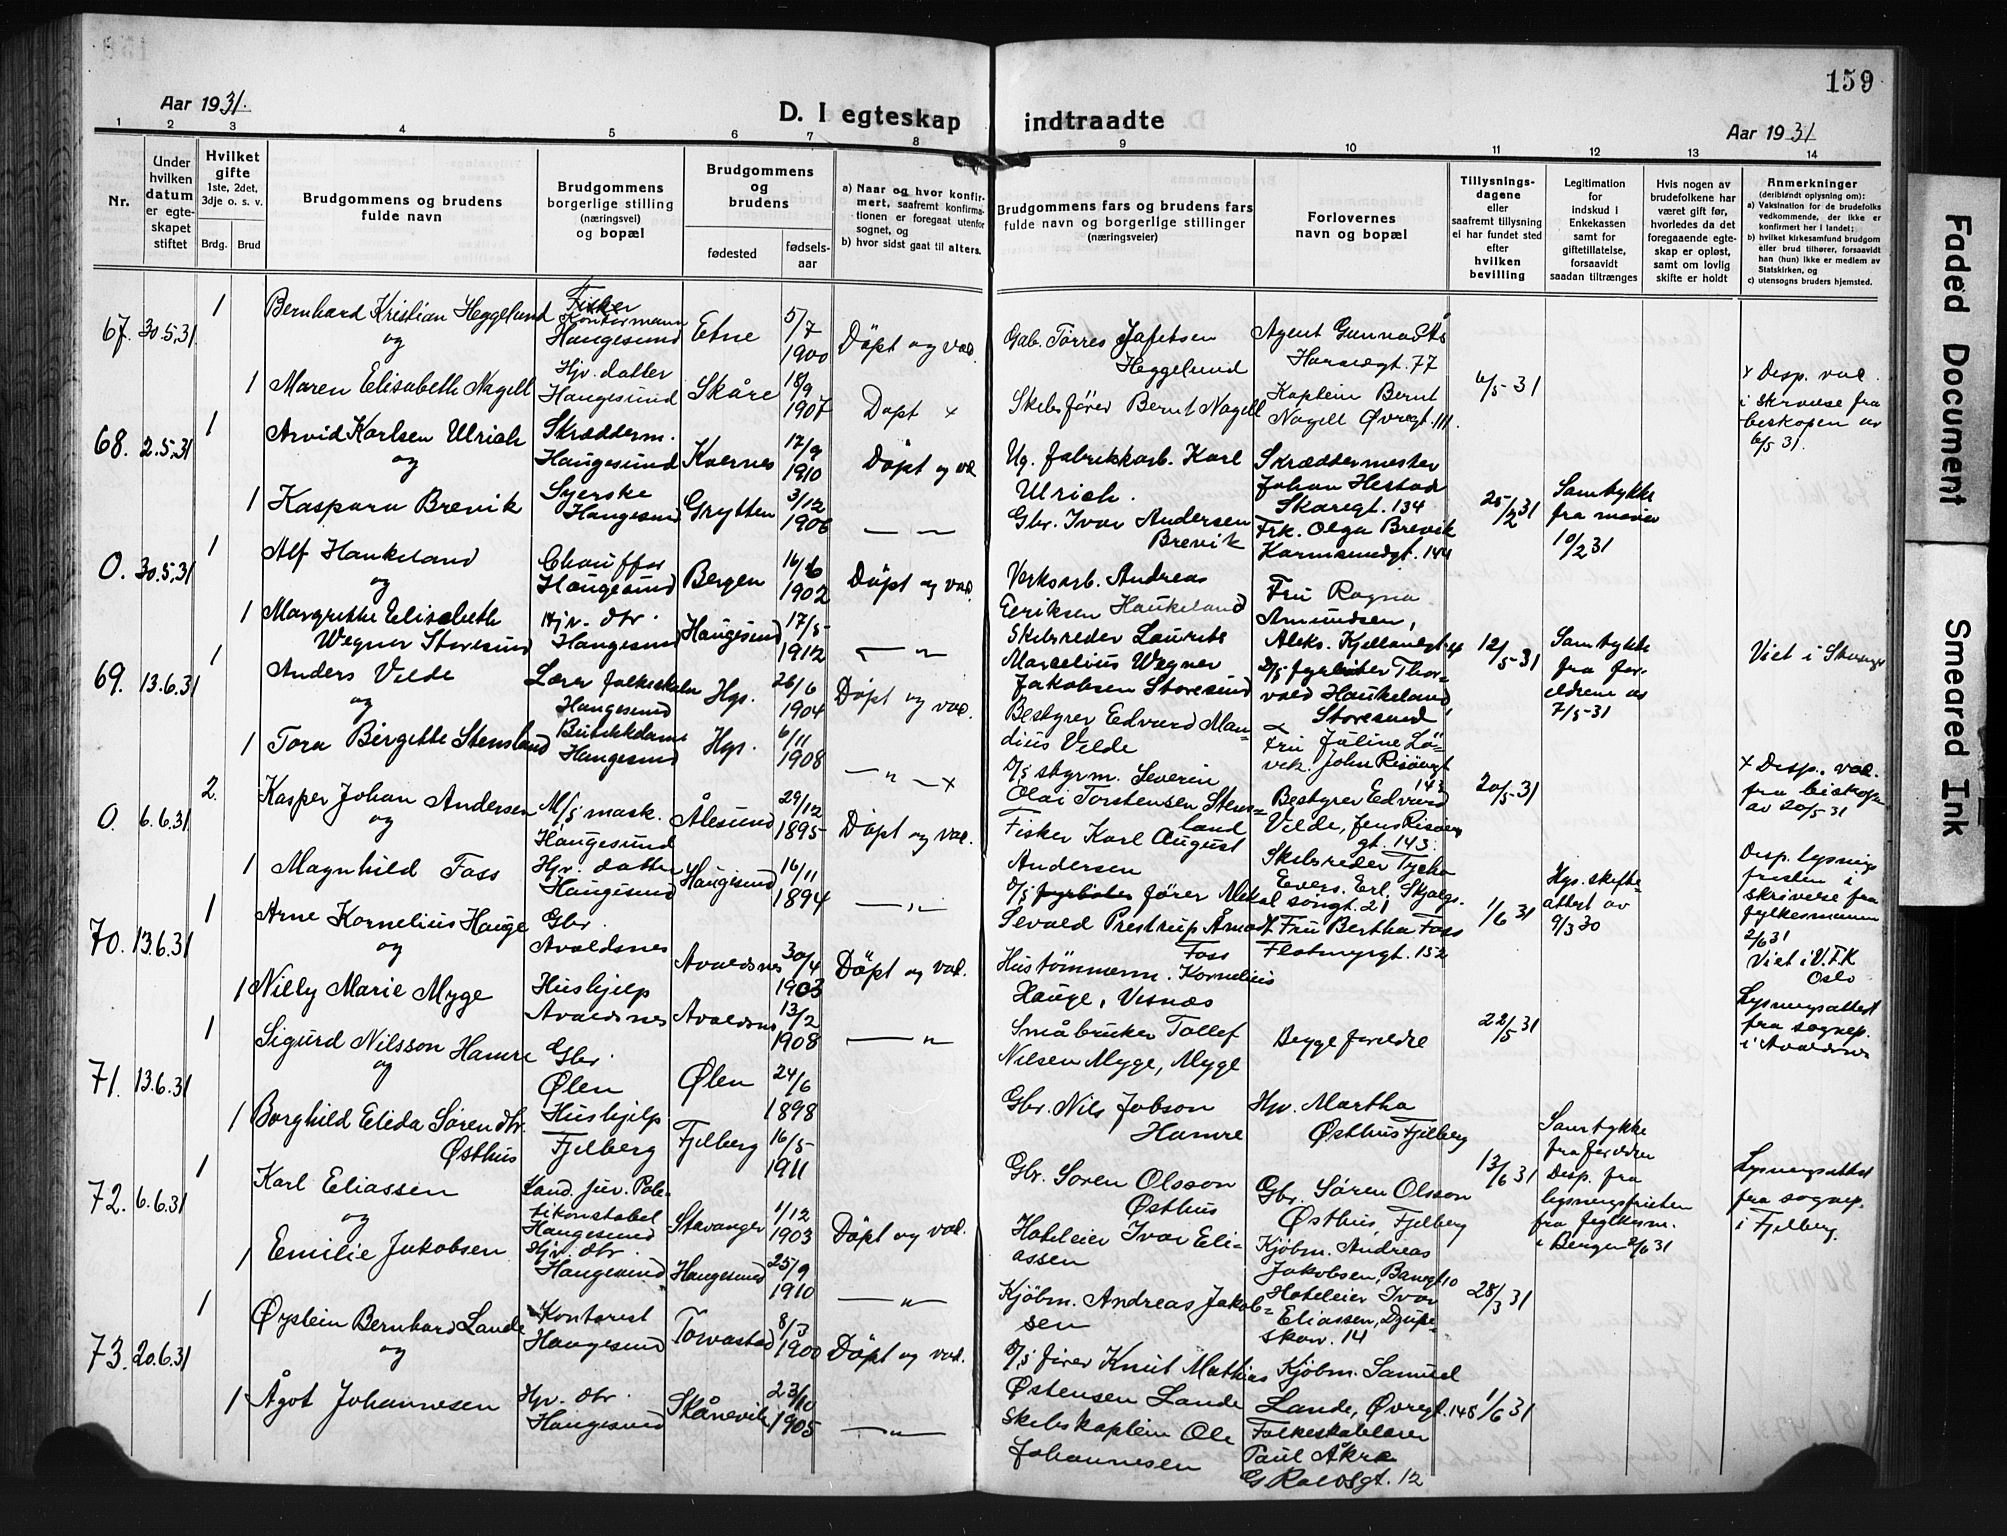 159
Aar 1931.
D. I egteskap indtraadte
Aar 1931
1 2 3 4 5 6 7 8 9 10 11 12 13 14
Nr.
Under
hvilken
datum
er egte-
skapet
stiftet
Hvilket
gifte
1ste, 2det,
3dje o. s. v.
Brdg. Brud
Brudgommens og brudens
fulde navn
Brudgommens
borgerlige stilling
(næringsvei)
og bopæl
Brudgommens
og
brudens
fødested
fødsels-
aar
a) Naar og hvor konfir-
mert, saafremt konfirma-
tionen er foregaat utenfor
sognet, og
b) hvor sidst gaat til alters.
Brudgommens fars og brudens fars
fulde navn og borgerlige stillinger
(næringsveier)
Forlovernes
navn og bopæl
Tillysnings-
dagene
eller
saafremt tillysning
ei har fundet sted
efter
hvilken
bevilling
Legitimation
for
indskud i
Enkekassen
samt for
giftetillatelse,
forsaavidt
saadan tiltrænges
Hvis nogen av
brudefolkene har
været gift før,
hvorledes da det
foregaaende egte-
skap er opløst,
samt om lovlig
skifte er holdt
Anmerkninger
(deriblandt oplysning om):
a) Vaksination for de brudefolks
vedkommende, der ikke er
konfirmert her i landet;
b) hvilket kirkesamfund brudgom
eller brud tilhører, forsaavidt
han (hun) ikke er medlem av
Statskirken, og
c) utensogns bruders hjemsted.
67. 30.5.31
1
Bernhard Kristian Heggelund
og
Fisker
Kontormann
Haugesund
Etne
5/7
1900
Döpt og vac.
Gab. Tørres Jafetsen
Heggelund
Agent Gunnar Ås
Haraldgt. 77
1
Maren Elisabeth Nagell
Hjv. datter
Haugesund
Skåre
18/9
1907
Døpt x
Skibsfører Bernt Nagell
Kaptein Bernt
Nagell Øvregt. 111.
6/5-31
x Disp. vac.
i skrivelse fra
biskopen av
6/5 31.
68. 2.5.31
1
Arvid Karlsen Ulrich
og
Skrædderm.
Haugesund
Kvernes
17/9
1910
Döpt og vac
Ug. fabrikkarb. Karl
Ulrich.
Skræddermester
Johan Hestad
Skåregt. 134
1
Kaspara Brevik
Syerske
Haugesund
Grytten
3/12
1906
— —
Gbr. Ivar Andersen
Brevik
Frk. Olga Brevik
Karmsundgt. 144
25/2 31
Samtykke
fra moren
10/2 31
0. 30.5.31
1
Alf Haukeland
og
Chauffør
Haugesund
Bergen
16/6
1902
Döpt og vac.
Verksarb. Andreas
Eriksen Haukeland
Fru Ragna
Amundsen,
Aleks. Kjellandgt.
1
Margrethe Elisabeth
Wegner Storesund
Hjv. dtr.
Haugesund
Haugesund
17/5-
1912
— " —
Skibsreder Laurits
Marcelius Wegner
Jakobsen Storesund
D/s fyrbøter Thor-
vald Haukeland,
Storesund
12/5-31
Samtykke
fra for-
eldrene av
7/5-31
Viet i Stavanger
69. 13.6.31
1
Anders Velde
og
Lærer folkeskolen
Haugesund
Hgs.
26/6
1904
Döpt og vac.
Bestyrer Edvard Man-
dius Velde
Fru Juline Lö-
vik. John Risøgt
143
1
Tora Birgitte Stensland
Butikkdame
Haugesund
Hgs.
6/11
1908
— " — x
D/s styrm. Severin
Olai Torstensen Stens-
land
Bestyrer Edvard
Velde, Jens Risøens
gt. 143.
20/5-31
x Disp. vac.
fra biskopen
av 20/5-31
0. 6.6.31
2.
Kasper Johan Andersen
og
M/s mask.
Haugesund
Ålesund
29/12
1895-
Döpt og vac.
Fisker Karl August
Andersen
Skibsreder Tycho
Evers. Erl. Skjalgs-
songt. 21
1
Magnhild Foss
Hjv. datter
Haugesund
Haugesund
16/11
1894
— " —
D/s fyrbøter fører Mikal
Sevald Prestrup Åmodt
Foss
Fru Bertha Foss
Flotmyrgt. 152
1/6 31
Hgs. skifte-
attest av
9/3 30
Disp. lysnings
fristen i
skrivelse fra
fylkesmannen
2/6 31
Viet i V.F.K
Oslo
70. 13.6.31
1
Arne Kornelius Hauge
og
Gbr.
Avaldsnes
Avaldsnes
30/4
1903
Döpt og vac.
Hustömmerm. Kornelius
Hauge, Visnæs
1
Nilly Marie Myge
Hushjelp
Avaldsnes
Avaldsnes
13/2
1908
— " —
Småbruker Tollef
Nilsen Myge, Myge
Begge foreldre
22/5 31
Lysningsattest
fra sognep.
i Avaldsnes
71. 13.6.31
1
Sigurd Nilsson Hamre
og
Gbr.
Ølen
Ølen
24/6
1898
Gbr. Nils Jobson
Hamre
Hjv. Martha
Østhus Fjelberg
1
Borghild Elida Sørendtr.
Østhus
Hushjelp
Fjelberg
Fjelberg
16/5-
1911
Gbr. Sören Olsson
Østhus
Gbr. Sören Olsson
Østhus, Fjelberg
13/6 31
Samtykke
fra foreldren
Disp. fra
lysningsfristen
fra fylkesm.
i Bergen 2/6 31
Lysningsattest
fra sognep.
i Fjelberg.
72. 6.6.31
1
Karl Eliassen
og
Kand. jur. Poli-
tikonstabel
Haugesund
Stavanger
1/12
1903
Döpt og vac.
Hoteleier Ivar Eli-
assen
Kjöbm. Andreas
Jakobsen, Banegt 10
1
Emilie Jakobsen
Hjv. dtr.
Haugesund
Haugesund
25/9
1910
— " —
Kjöbm. Andreas Jakob-
sen
Hoteleier Ivar
Eliassen, Djupe-
skar. 14
28/3 31
73. 20.6.31
1
Øystein Bernhard Lande
og
Kontorist
Haugesund
Torvastad
8/3
1900
Döpt og vac.
D/s fører Knut Mathias
Østensen Lande
Kjöbm. Samuel
Lande, Øvregt. 148
1
Ågot Johannesen
Hjv. dtr.
Haugesund
Skånevik
23/10
1905
— " —
Skibskaptein Ole
Johannesen
Folkeskolelærer
Paul Åkra
G Roaldsgt. 12
1/6 31
Faded Document
Smeared Ink